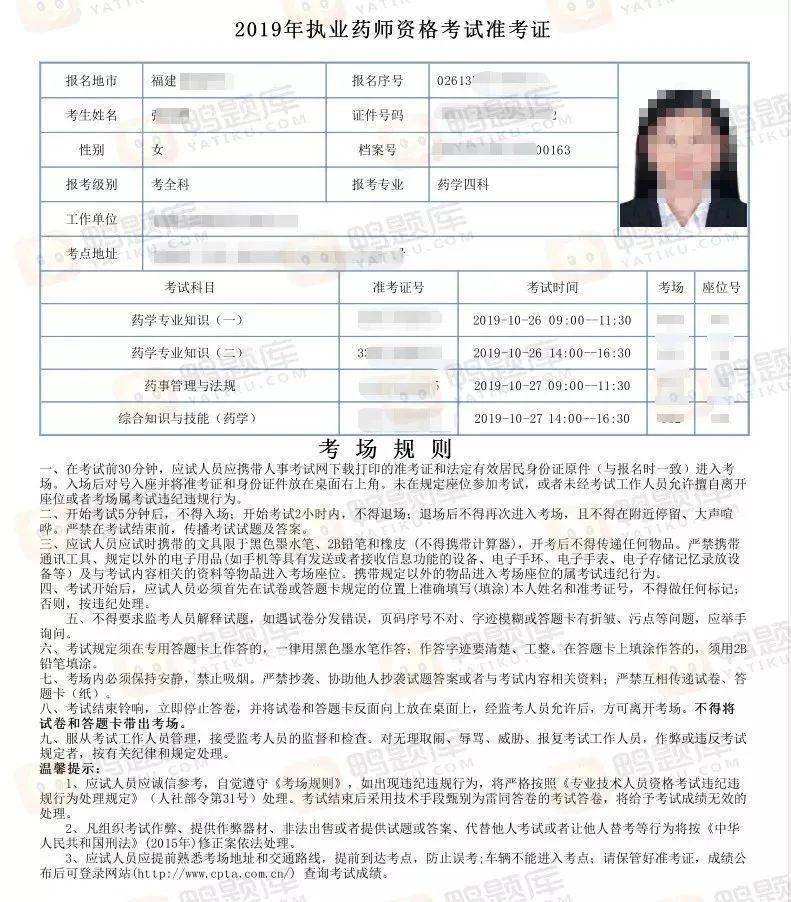 2019年执业药师资格考试准考证
报名地市 福建 报名序号 02613
考生姓名 证件号码 2
性别 女 档案号 00163
报考级别 考全科 报考专业 药学四科
工作单位
考点地址
考试科目 准考证号 考试时间 考场 座位号
药学专业知识（一） 2019-10-26 09:00--11:30
药学专业知识（二） 2019-10-26 14:00--16:30
药事管理与法规 2019-10-27 09:00--11:30
综合知识与技能（药学） 2019-10-27 14:00--16:30
考 场 规 则
一、在考试前30分钟，应试人员应携带人事考试网下载打印的准考证和法定有效居民身份证原件（与报名时一致）进入考
场。入场后对号入座并将准考证和身份证件放在桌面右上角。未在规定座位参加考试，或者未经考试工作人员允许擅自离开
座位或者考场属考试违纪违规行为。
二、开始考试5分钟后，不得入场；开始考试2小时内，不得退场；退场后不得再次进入考场，且不得在附近停留、大声喧
哗。严禁在考试结束前，传播考试试题及答案。
三、应试人员应试时携带的文具限于黑色墨水笔、2B铅笔和橡皮（不得携带计算器），开考后不得传递任何物品。严禁携带
通讯工具、规定以外的电子用品(如手机等具有发送或者接收信息功能的设备、电子手环、电子手表、电子存储记忆录放设
备等）及与考试内容相关的资料等物品进入考场座位。携带规定以外的物品进入考场座位的属考试违纪行为。
四、考试开始后，应试人员必须首先在试卷或答题卡规定的位置上准确填写(填涂)本人姓名和准考证号，不得做任何标记；
否则，按违纪处理。
五、不得要求监考人员解释试题，如遇试卷分发错误，页码序号不对、字迹模糊或答题卡有折皱、污点等问题，应举手
询问。
六、考试规定须在专用答题卡上作答的，一律用黑色墨水笔作答；作答字迹要清楚、工整。在答题卡上填涂作答的，须用2B
铅笔填涂。
七、考场内必须保持安静，禁止吸烟。严禁抄袭、协助他人抄袭试题答案或者与考试内容相关资料；严禁互相传递试卷、答
题卡（纸）。
八、考试结束铃响，立即停止答卷，并将试卷和答题卡反面向上放在桌面上，经监考人员允许后，方可离开考场。不得将
试卷和答题卡带出考场。
九、服从考试工作人员管理，接受监考人员的监督和检查。对无理取闹、辱骂、威胁、报复考试工作人员，作弊或违反考试
规定者，按有关纪律和规定处理。
温馨提示：
1、应试人员应诚信参考，自觉遵守《考场规则》，如出现违纪违规行为，将严格按照《专业技术人员资格考试违纪违
规行为处理规定》（人社部令第31号）处理。考试结束后采用技术手段甄别为雷同答卷的考试答卷，将给予考试成绩无效的
处理。
2、凡组织考试作弊、提供作弊器材、非法出售或者提供试题或答案、代替他人考试或者让他人替考等行为将按《中华
人民共和国刑法》(2015年)修正案依法处理。
3、应试人员应提前熟悉考场地址和交通路线，提前到达考点，防止误考;车辆不能进入考点；请保管好准考证，成绩公
布后可登录网站(http://www.cpta.com.cn/) 查询考试成绩。
鸭题库
YATIKU.COM